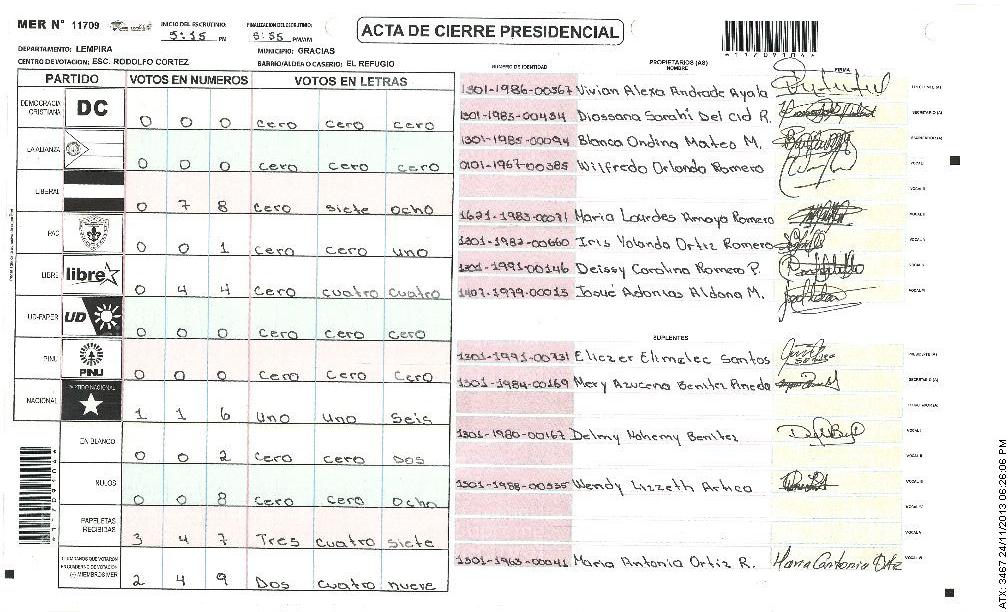 MER N° 11709
INICIO DEL ESCRUTINIO: 5:15 PM
FINALIZACION DEL ESCRUTINIO: PM/AM
ACTA DE CIERRE PRESIDENCIAL
DEPARTAMENTO: LEMPIRA
MUNICIPIO: GRACIAS
CENTRO DE VOTACION: ESC. RODOLFO CORTEZ
BARRIO/ALDEA O CASERIO: EL REFUGIO
PARTIDO VOTOS EN NUMEROS VOTOS EN LETRAS
DEMOCRACIA CRISTIANA DC 0 0 0 cero cero cero
LA ALIANZA 0 0 0 cero cero cero
LIBERAL 0 7 8 cero siete ocho
PAC 0 0 1 cero cero uno
LIBRE libre 0 4 4 cero cuatro cuatro
UD-FAPER UD 0 0 0 cero cero cero
PINU PINU 0 0 0 cero cero cero
NACIONAL PARTIDO NACIONAL 1 1 6 uno uno seis
EN BLANCO 0 0 2 cero cero dos
NULOS 0 0 8 cero cero ocho
PAPELETAS RECIBIDAS 3 4 7 Tres cuatro siete
CIUDADANOS QUE VOTARON EN CUADERNO DE VOTACION (+) MIEMBROS MER 2 4 9 Dos cuatro nueve
NUMERO DE IDENTIDAD PROPIETARIOS (AS) NOMBRE FIRMA
1301-1986-00367 Vivian Alexa Andrade Ayala
1301-1985-00434 Diossana Sarahi Del Cid R. SECRETARIO (A)
1301-1985-00094 Blanca Ondina Mateo M.
0101-1967-00385 Wilfredo Orlando Romero VOCAL I
1621-1983-00071 Maria Lourdes Amaya Romero
1301-1982-00660 Iris Yolanda Ortiz Romero
1301-1991-00146 Deissy Carolina Romero P.
1407-1979-00015 Josué Adonias Aldana M.
SUPLENTES
1301-1991-00731 Eliezer Elimelec Santos PRESIDENTE (A)
1301-1984-00169 Mery Azucena Benitez Pineda SECRETARIO (A)
1301-1980-00167 Delmy Nohemy Benitez
1301-1988-00335 Wendy Lizzeth Artica
1301-1965-00041 Maria Antonia Ortiz R. Maria Antonia Ortiz
11709104
ATX: 3467 24/11/2013 06:26:06 PM